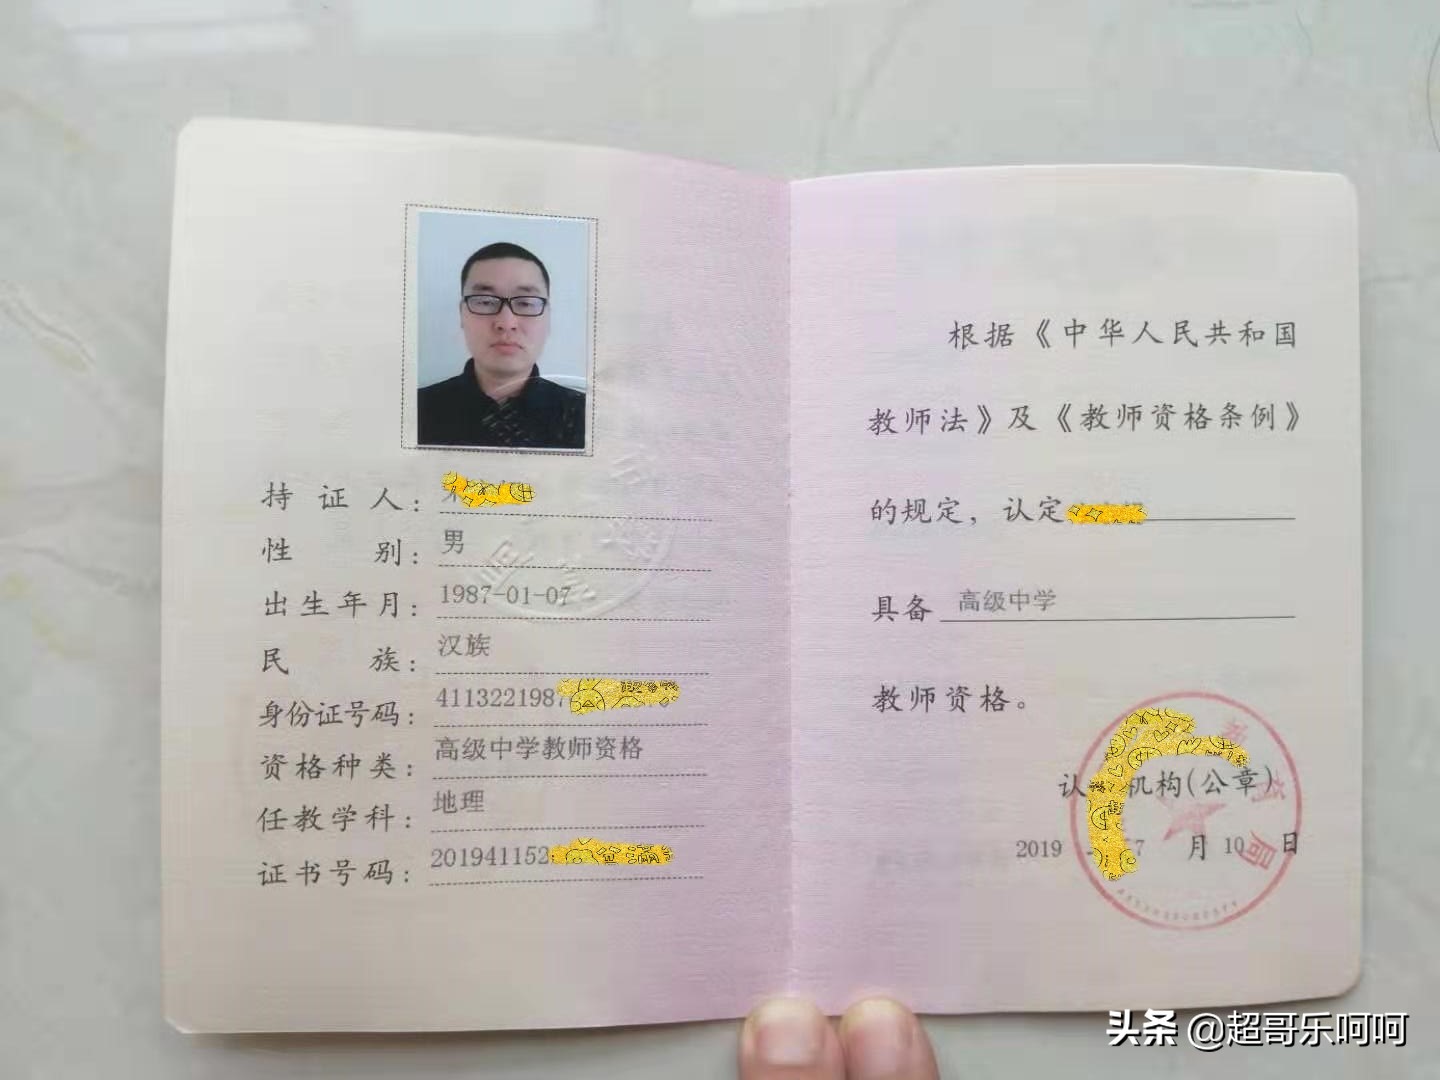 持证人：
性别：男
出生年月：1987-01-07
民族：汉族
身份证号码：411322198
资格种类：高级中学教师资格
任教学科：地理
证书号码：201941152
根据《中华人民共和国
教师法》及《教师资格条例》
的规定，认定
具备 高级中学
教师资格。
认 机构(公章)
2019 7 月 10 日
育局
头条 @超哥乐呵呵